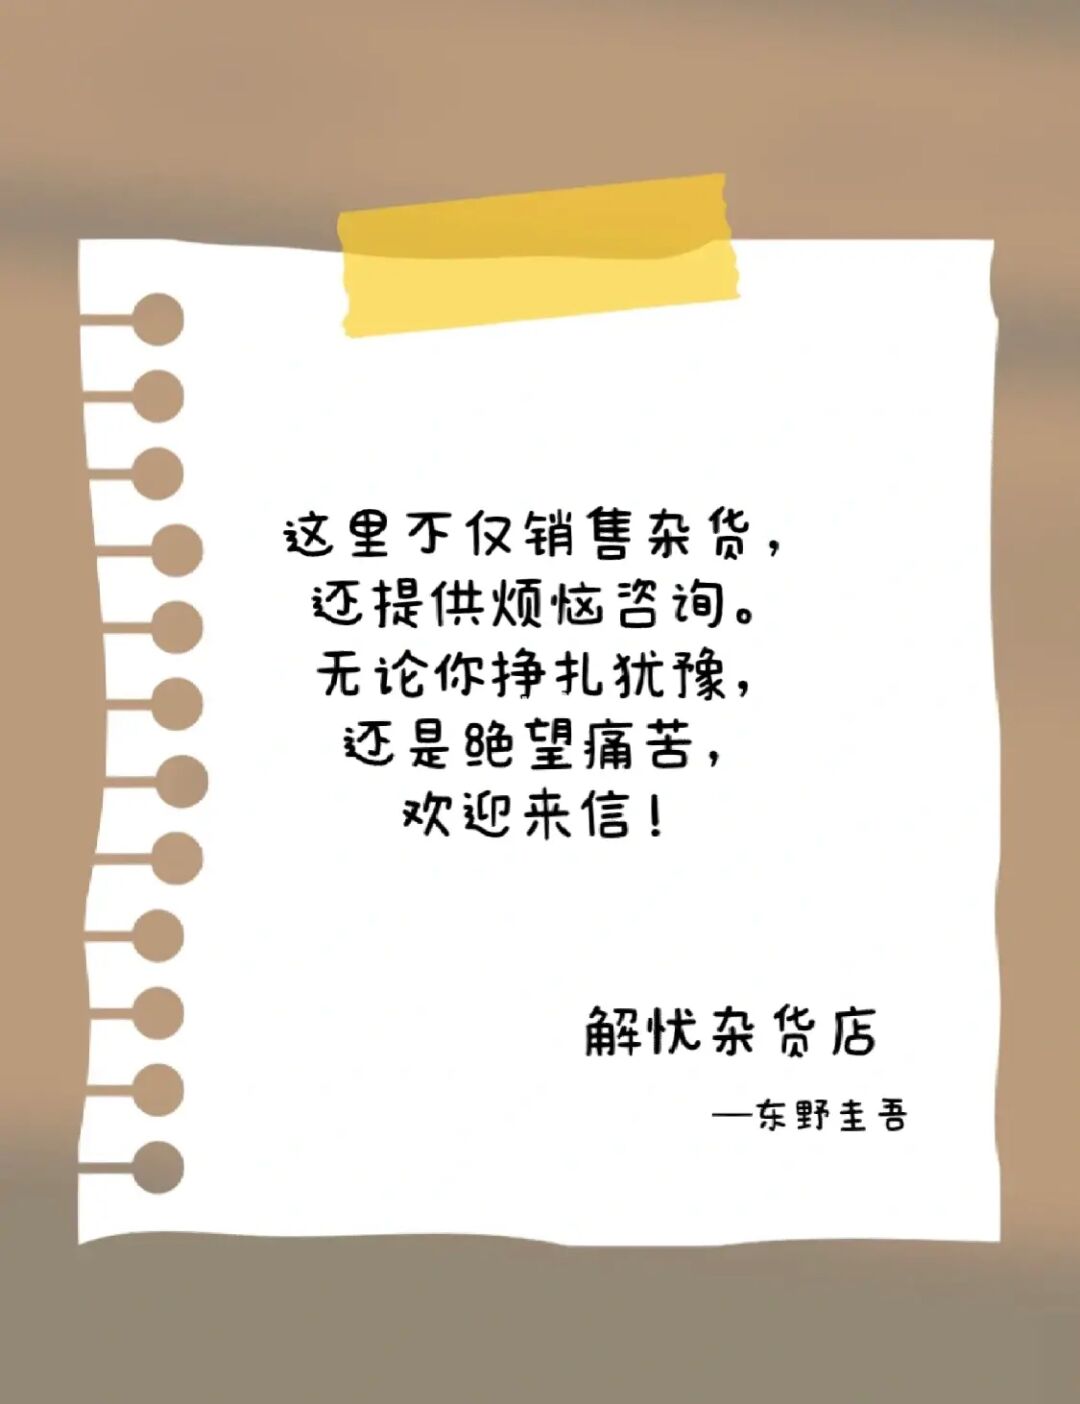 这里不仅销售杂货，
还提供烦恼咨询。
无论你挣扎犹豫，
还是绝望痛苦，
欢迎来信！
解忧杂货店
—东野圭吾